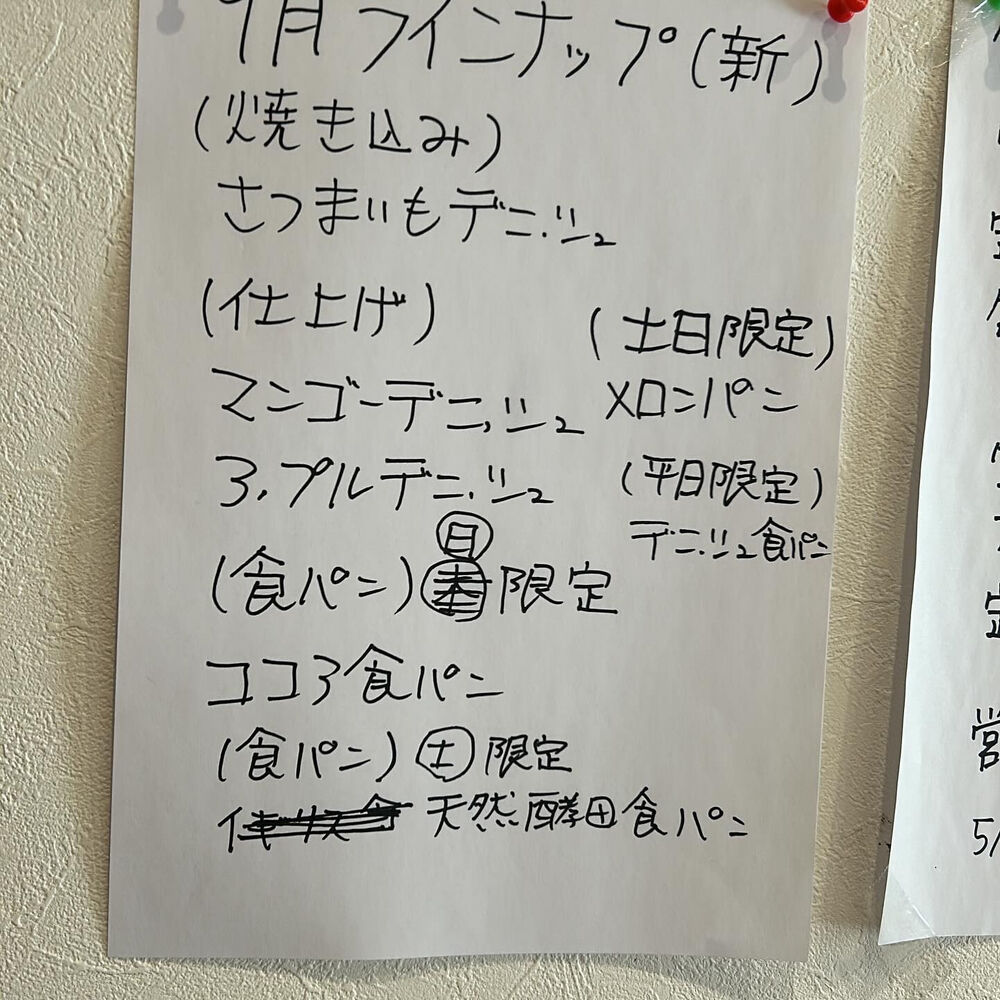 9月ラインナップ(新)
(焼き込み)
さつまいもデニッシュ
(仕上げ)
マンゴーデニッシュ
アップルデニッシュ
(土日限定)
メロンパン
(平日限定)
デニッシュ食パン
(食パン)日限定
ココア食パン
(食パン)土限定
天然酵母食パン
定
営
5/